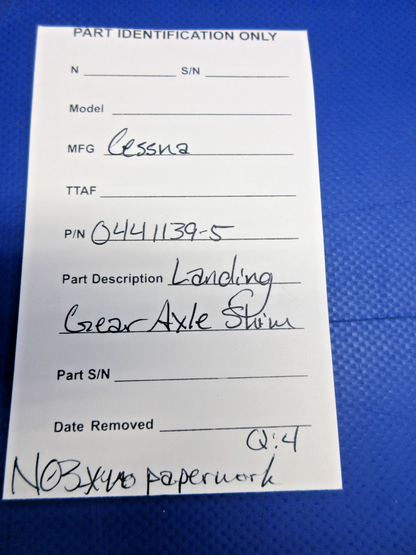 PART IDENTIFICATION ONLY
N S/N
Model
MFG Cessna
TTAF
P/N 0441139-5
Part Description Landing
Gear Axle Shim
Part S/N
Date Removed
Q:4
paperwork